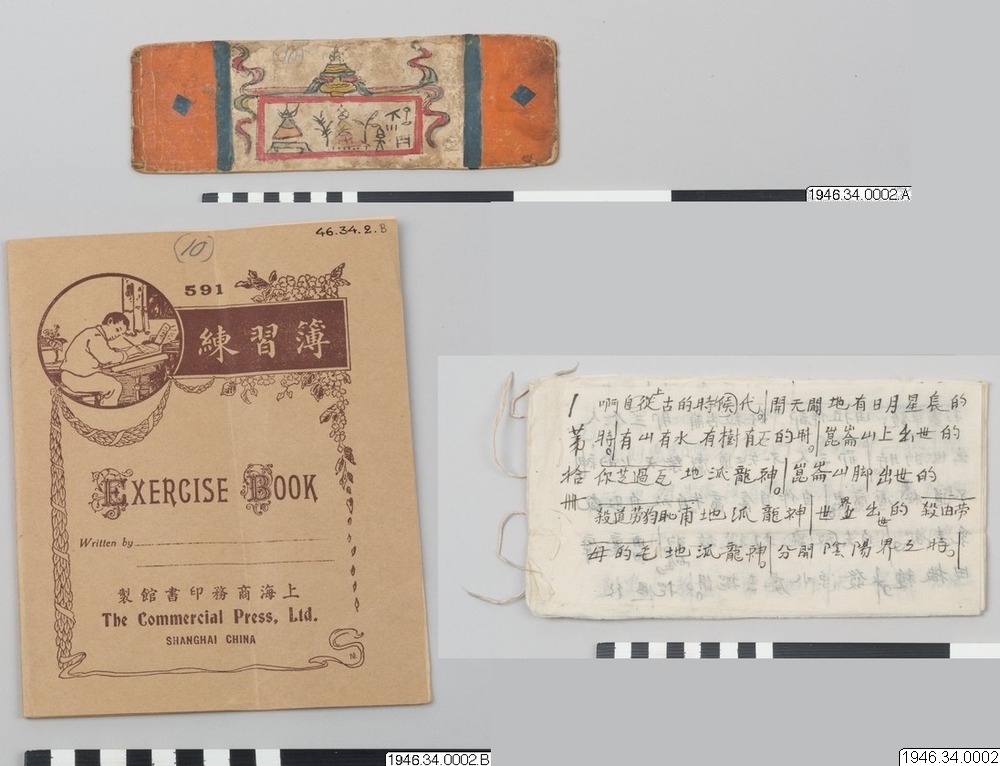 1946.34.0002.A
46.34.2.B
10
591
練習簿
EXERCISE BOOK
Written by
上海商務印書館製
The Commercial Press, Ltd.
SHANGHAI CHINA
1946.34.0002.B
1 啊自從上古的時候代。開天闢地有日月星長的
時。有山有水有樹有石的時。崑崙山上出世的
你芝過瓦地派龍神。崑崙山脚出世的
地派龍神世界上出世的
母的毛地派龍神分開陰陽界之時。
1946.34.0002